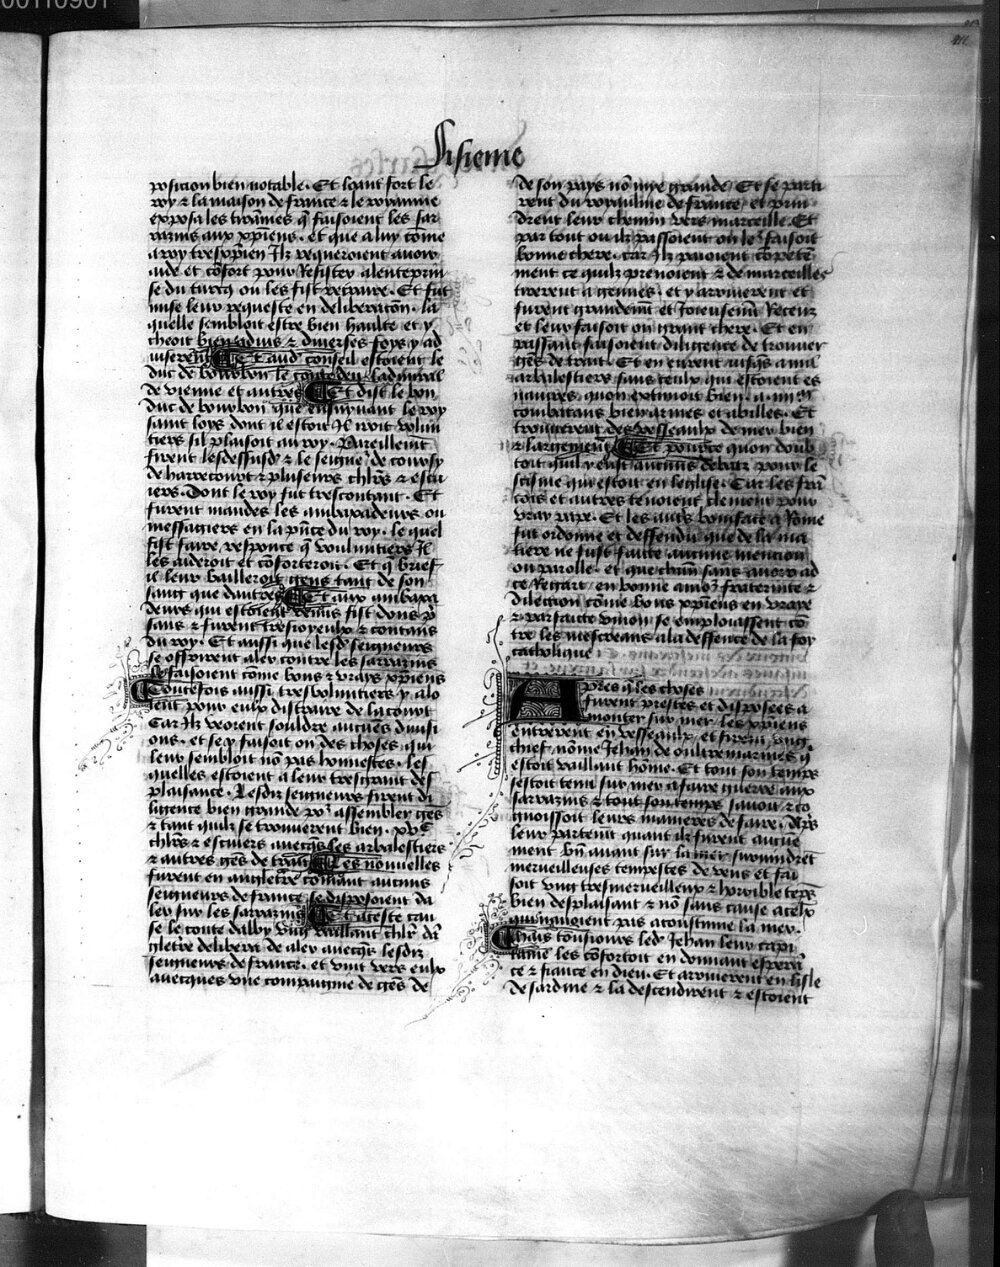 00110901
Sisieme
posicion bien notable. Et loant fort le
roy & la maison de france & le royaume
exposa les tirannies q̄ faisoient les sar
razins aux xp̄iens. et que a luy cōme
a roy tresxp̄ien Ilz requeroient auoir
aide et cōfort pour Resister alenteprin
se du turcq ou les fist retraire. Et fut
mise leur requeste en deliberacōn. la
quelle sembloit estre bien haulte et y
cheoit bien aduis & diuerses foys y ad
uiserent Et aud' conseil estoient le
duc de bourbon le conte deu. ladmiral
de vienne et autres Et dist le bon
duc de bourbon que ensuyuant le roy
saint loys dont il estoit Il iroit volun
tiers sil plaisoit au roy. Pareillemt̄
firent lesdessusd' & le seigne' de coucy
de harrecourt & pluseurs chl̄rs & escu
iers. Dont le roy fut trescontant. Et
furent mandes les ambaxadeurs ou
messagiers en la pn̄ce du roy. le quel
fist faire responce q̄ voulentiers Il
les aideroit et cōforteroit. Et q̄ brief
il leur bailleroit gens tant de son
sang que dautres Et aux ambaxa
deurs qui estoient venus fist dons p̄
sans & furent tresioyeulx & contans
du roy. Et aussi que lesd' seigneurs
se offrirent aler contre les sarrazins
Et le faisoient cōme bons & vrays xp̄iens
Toutesfois aussi tresvoluntiers y alo
ient pour eulx distraire de la court
Car Ilz veoient souldre aucūes diuisi
ons. et se y faisoit on des choses qui
leur sembloit nō pas honnestes. les
quelles estoient a leur tresgrant des
plaisance. Lesdiz seigneurs firent di
ligence bien grande po' assembler gēs
& tant quilz se trouuerent bien. xvᶜ
chl̄rs & escuiers auecq̄s les arbalestiers
& autres gēs de trait Les nouuelles
furent en angleter̄e cōmant aucuns
seigneurs de france se disposoient da
ler sur les sarrazins Et a ceste cau
se le conte dalby vng vaillant chl̄r dā
gleter̄e delibera de aler auecq̄s lesdiz
seigneurs de france. et vint vers eulx
auecques vne compaignie de gēs de
de son pays nō mye grande Et se parti
rent du royaulme de france. et prin
drent leur chemin vers marceille. Et
par tout ou ilz passoient on le' faisoit
bonne chere. car Ilz paioient cōpetēm
ment ce quilz prenoient & de marceilles
tirerent a gennes. et y arriuerent et
furent grandemt̄ et Ioieusemt̄ Receuz
et leur faisoit on grant chere. Et en
passant faisoient diligence de trouuer
gēs de trait. Et en eurent iusq̄s a mil
arbalestiers sans ceulx qui estoient es
nauires quon extimoit bien a. iiii ᵐ
combatans bien armes et abilles. Et
trouuerent des vesseaulx de mer bien
& largement Et pource quon doub
toit quil y eust aucuns debatz pour le
scisme qui estoit en leglise. Car les frā
cois et autres tenoient clement pour
vray pape. Et les autr̄s boniface a Rōme
fut ordonne et deffendu que de la ma
tiere ne fust faicte aucune mencion
ou parolle. et que chūn sans auoir ad
ce Regart. en bonne amo' fraternite &
dilection cōme bons xp̄iens en vraye
& parfaicte vnion se emploiassent cō
tre les mescreans a la deffence de la foy
catholique
Apres q̄ les choses
furent prestes et disposees a
monter sur mer les xp̄iens
entrerent en vesseaulx. et firent vng
chief. nōme Jehan de oultremarines q̄
estoit vaillant hōme. Et tout son temps
sestoit tenu sur mer a faire guerre aux
sarrazins & tout son temps sauoit & co
gnoissoit leurs manieres de faire. Ap̄s
leur partemt̄ quant ilz furent aucūe
ment bn̄ auant sur la mer suruindrēt
merueilleuses tempestes de vens et fai
soit vng tresmerueilleux & horrible tēps
bien desplaisant & nō sans cause a ceulx
qui nauoient pas acoustume la mer.
Mais tousiours led' Jehan leur capi
taine les cōfortoit en donnant esperā
ce & fiance en dieu. Et arriuerent en lisle
de sardine & la descendirent & estoient